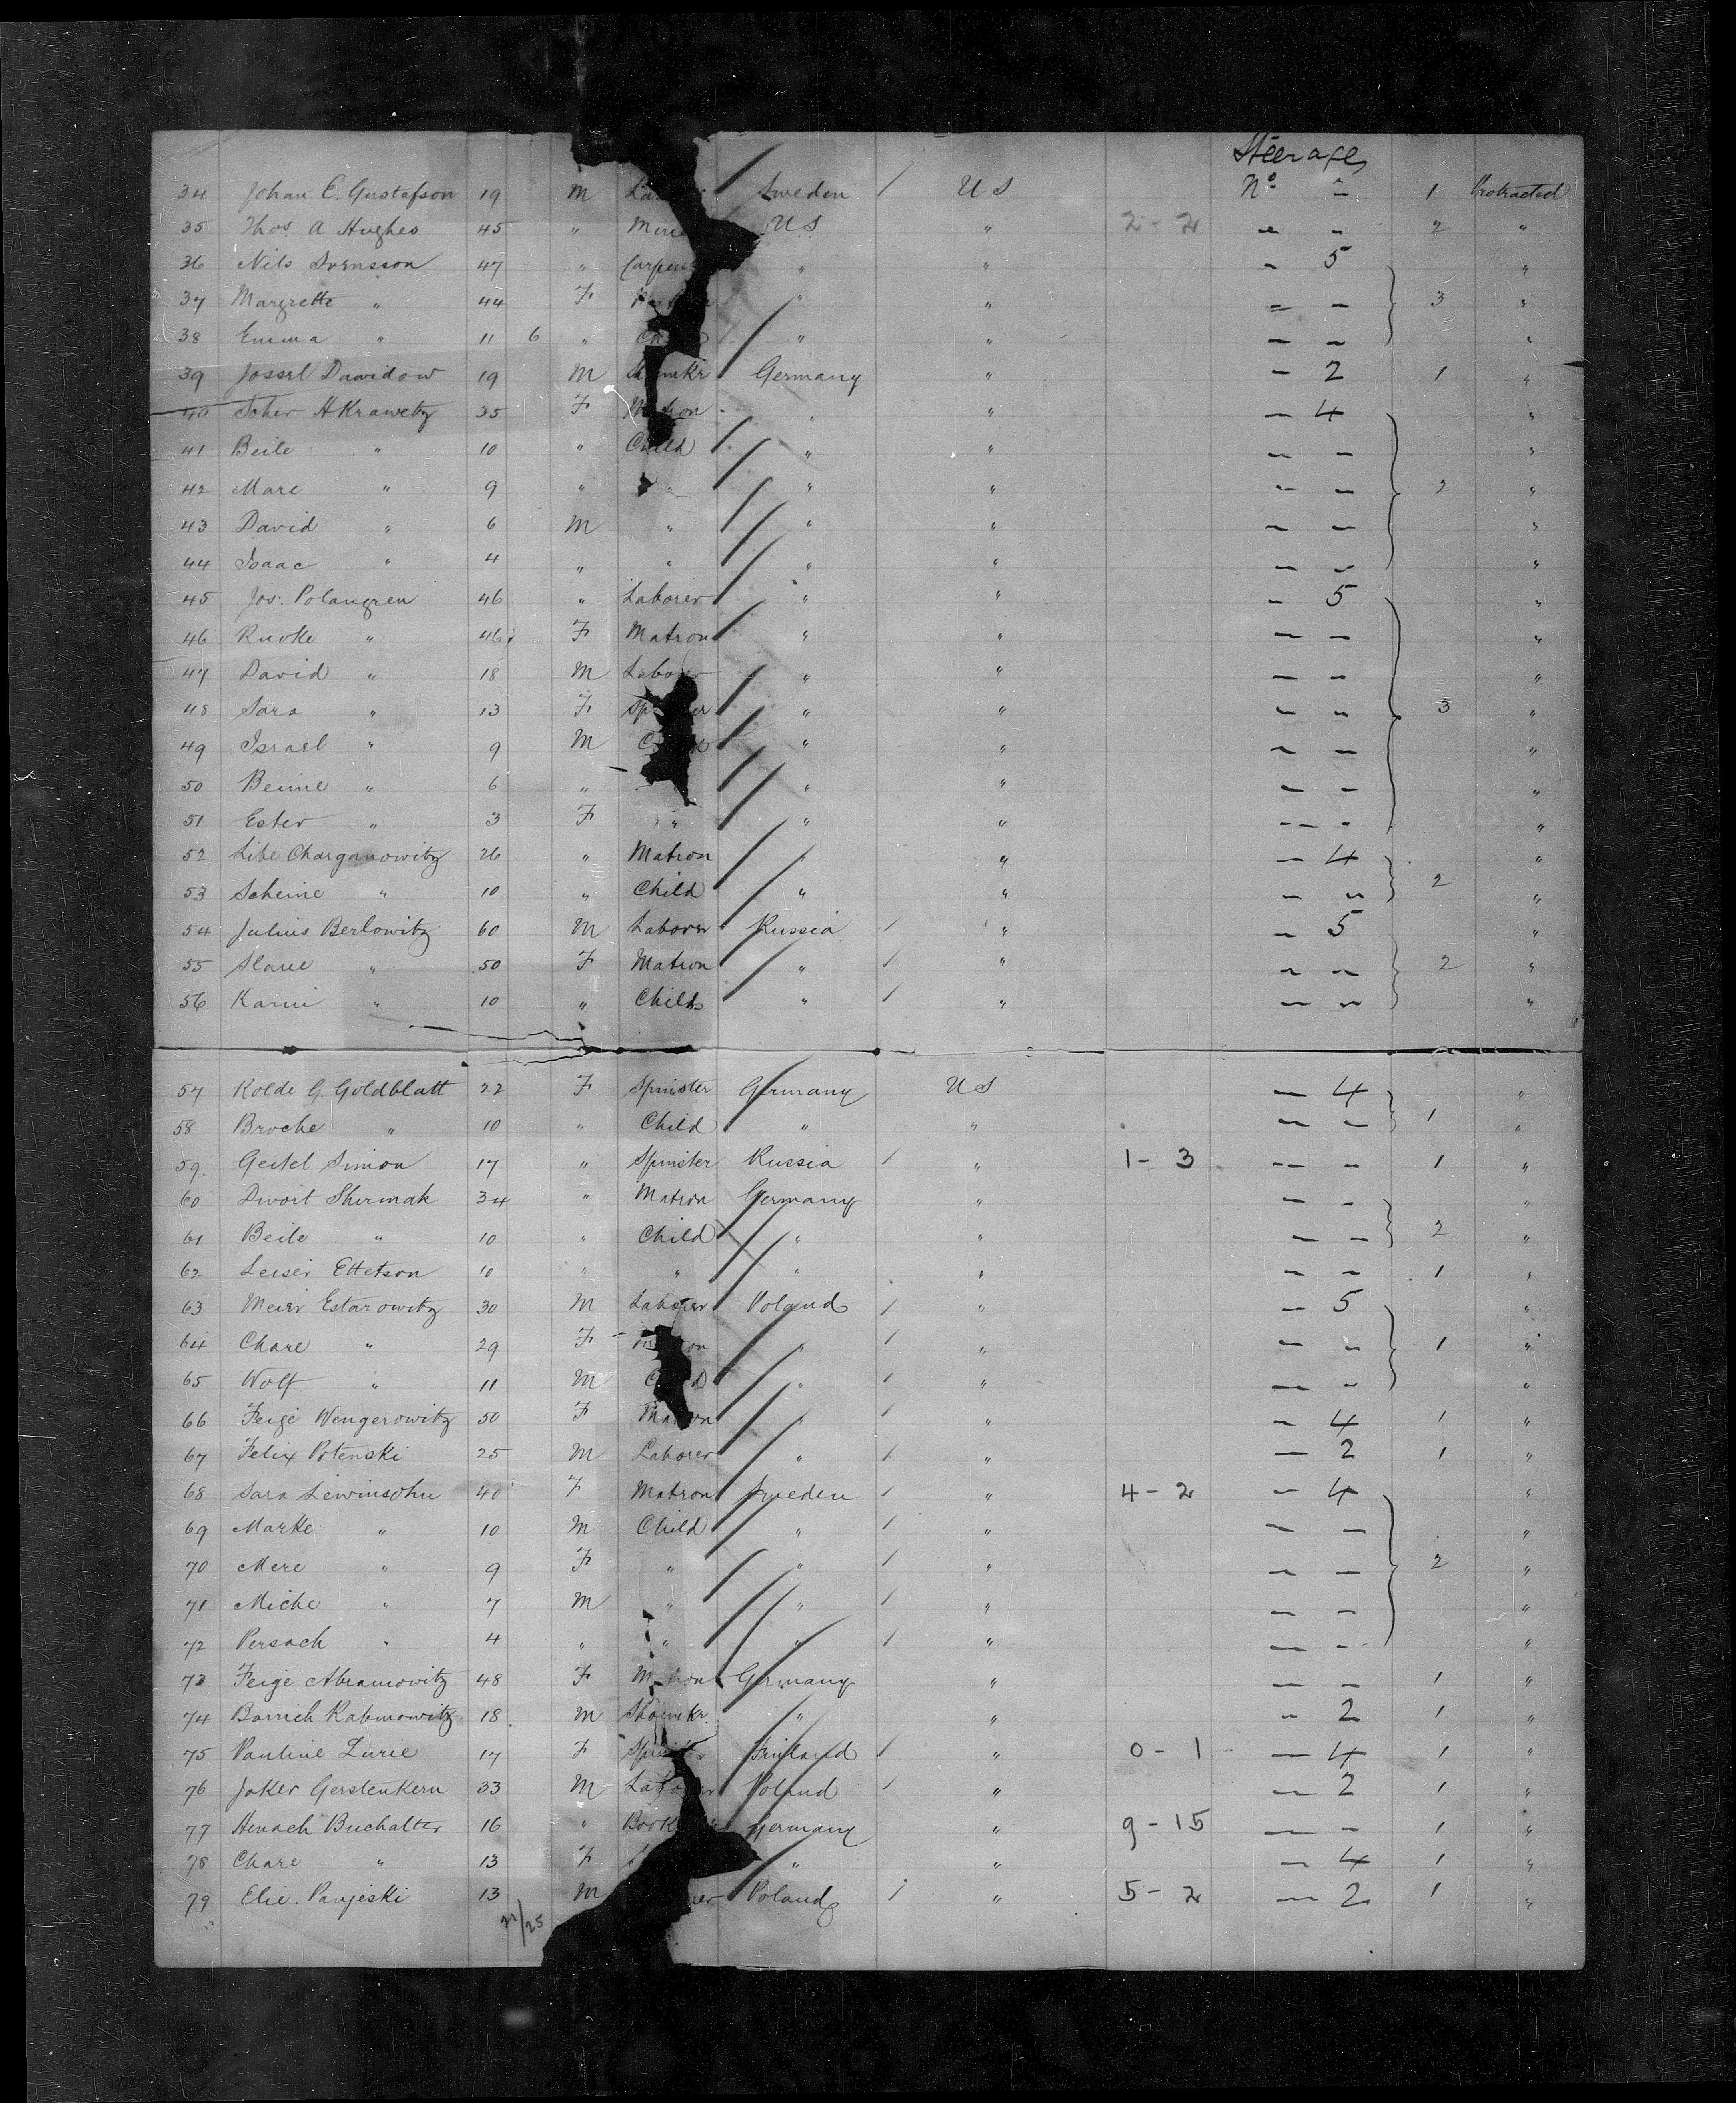 Steerage
34 Johan E. Gustafson 19 M Sweden / U S No 2 1 Protracted
35 Thos. A Hughes 45 " U.S " 2-2 " " 2 "
36 Nils Svensson 47 " Carpen " " - 5 "
37 Margrette " 44 F " " - - 3 "
38 Emma " 11 6 " " " - - "
39 Jossel Dawidow 19 M Germany " - 2 1 "
40 Scher H Krawetz 35 F Matron " " - 4 "
41 Beile " 10 " Child " " - - "
42 Mare " 9 " " " " - - 2 "
43 David " 6 M " " " - - "
44 Isaac " 4 " " " " - - "
45 Jos. Polangren 46 " Laborer " " - 5 "
46 Rucke " 46 F Matron " " - - "
47 David " 18 M Labo " " - - "
48 Sara " 13 F Sp er " " - - 3 "
49 Israel " 9 M " " - - "
50 Beime " 6 " " " - - "
51 Ester " 3 F " " " - - "
52 Libe Charganowitz 26 " Matron " " - 4 "
53 Scheine " 10 " Child " " - - 2 "
54 Julius Berlowitz 60 M Laborer Russia / " - 5 "
55 " 50 F Matron " / " - - 2 "
56 Karni " 10 " Child " / " - - "
57 Kolde G. Goldblatt 22 F Spinster Germany U S - 4 "
58 Broche " 10 " Child " " - - 1 "
59. Geitel Simon 17 " Spinster Russia / " 1-3 - - 1 "
60 Dwort Shermak 34 " Matron Germany " - - "
61 Beile " 10 " Child " " - - 2 "
62 Leiser Ettetson 10 " " " " - - 1 "
63 Meier Estarowitz 30 M Laborer Poland / " - 5 "
64 Chare " 29 F on " / " - - 1 "
65 Wolf " 11 M C d " / " - - "
66 Feige Wengerowitz 50 F Matron " / " - 4 1 "
67 Felix Potenski 25 M Laborer " / " - 2 1 "
68 Sara Lewinsohn 40 F Matron Sweden / " 4-2 - 4 "
69 Marke " 10 M Child " / " - - "
70 Mere " 9 F " " / " - - 2 "
71 Miche " 7 M " " / " - - "
72 Persach " 4 " " " / " - - "
73 Feige Abramowitz 48 F Matron Germany " - - 1 "
74 Barrich Rabinowitz 18 M Shoemkr. " " - 2 1 "
75 Pauline Lurie 17 F Finland / " 0-1 - 4 1 "
76 Joker Gerstenkern 33 M Laborer Poland / " - 2 1 "
77 Henach Buchalter 16 " Book Germany " 9-15 - - 1 "
78 Chare " 13 F " " - 4 1 "
79 Elie. Panjeski 13 M er Poland / " 5-2 - 2 1 "
21/25